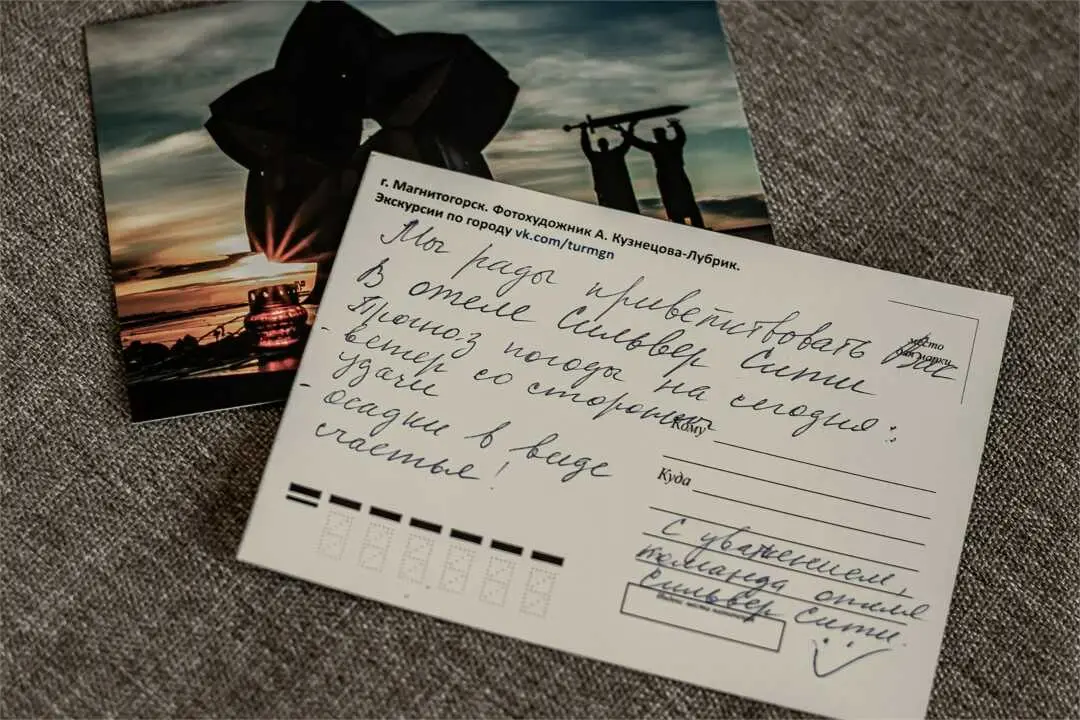 г. Магнитогорск. Фотохудожник А. Кузнецова-Лубрик.
Экскурсии по городу vk.com/turmgn
Мы рады приветствовать Вас
В отеле Сильвер Сити
Прогноз погоды на сегодня:
- ветер со стороны
удачи
- осадки в виде
счастья!
место
для марки
Кому
Куда
С уважением,
команда отеля
Сильвер Сити.